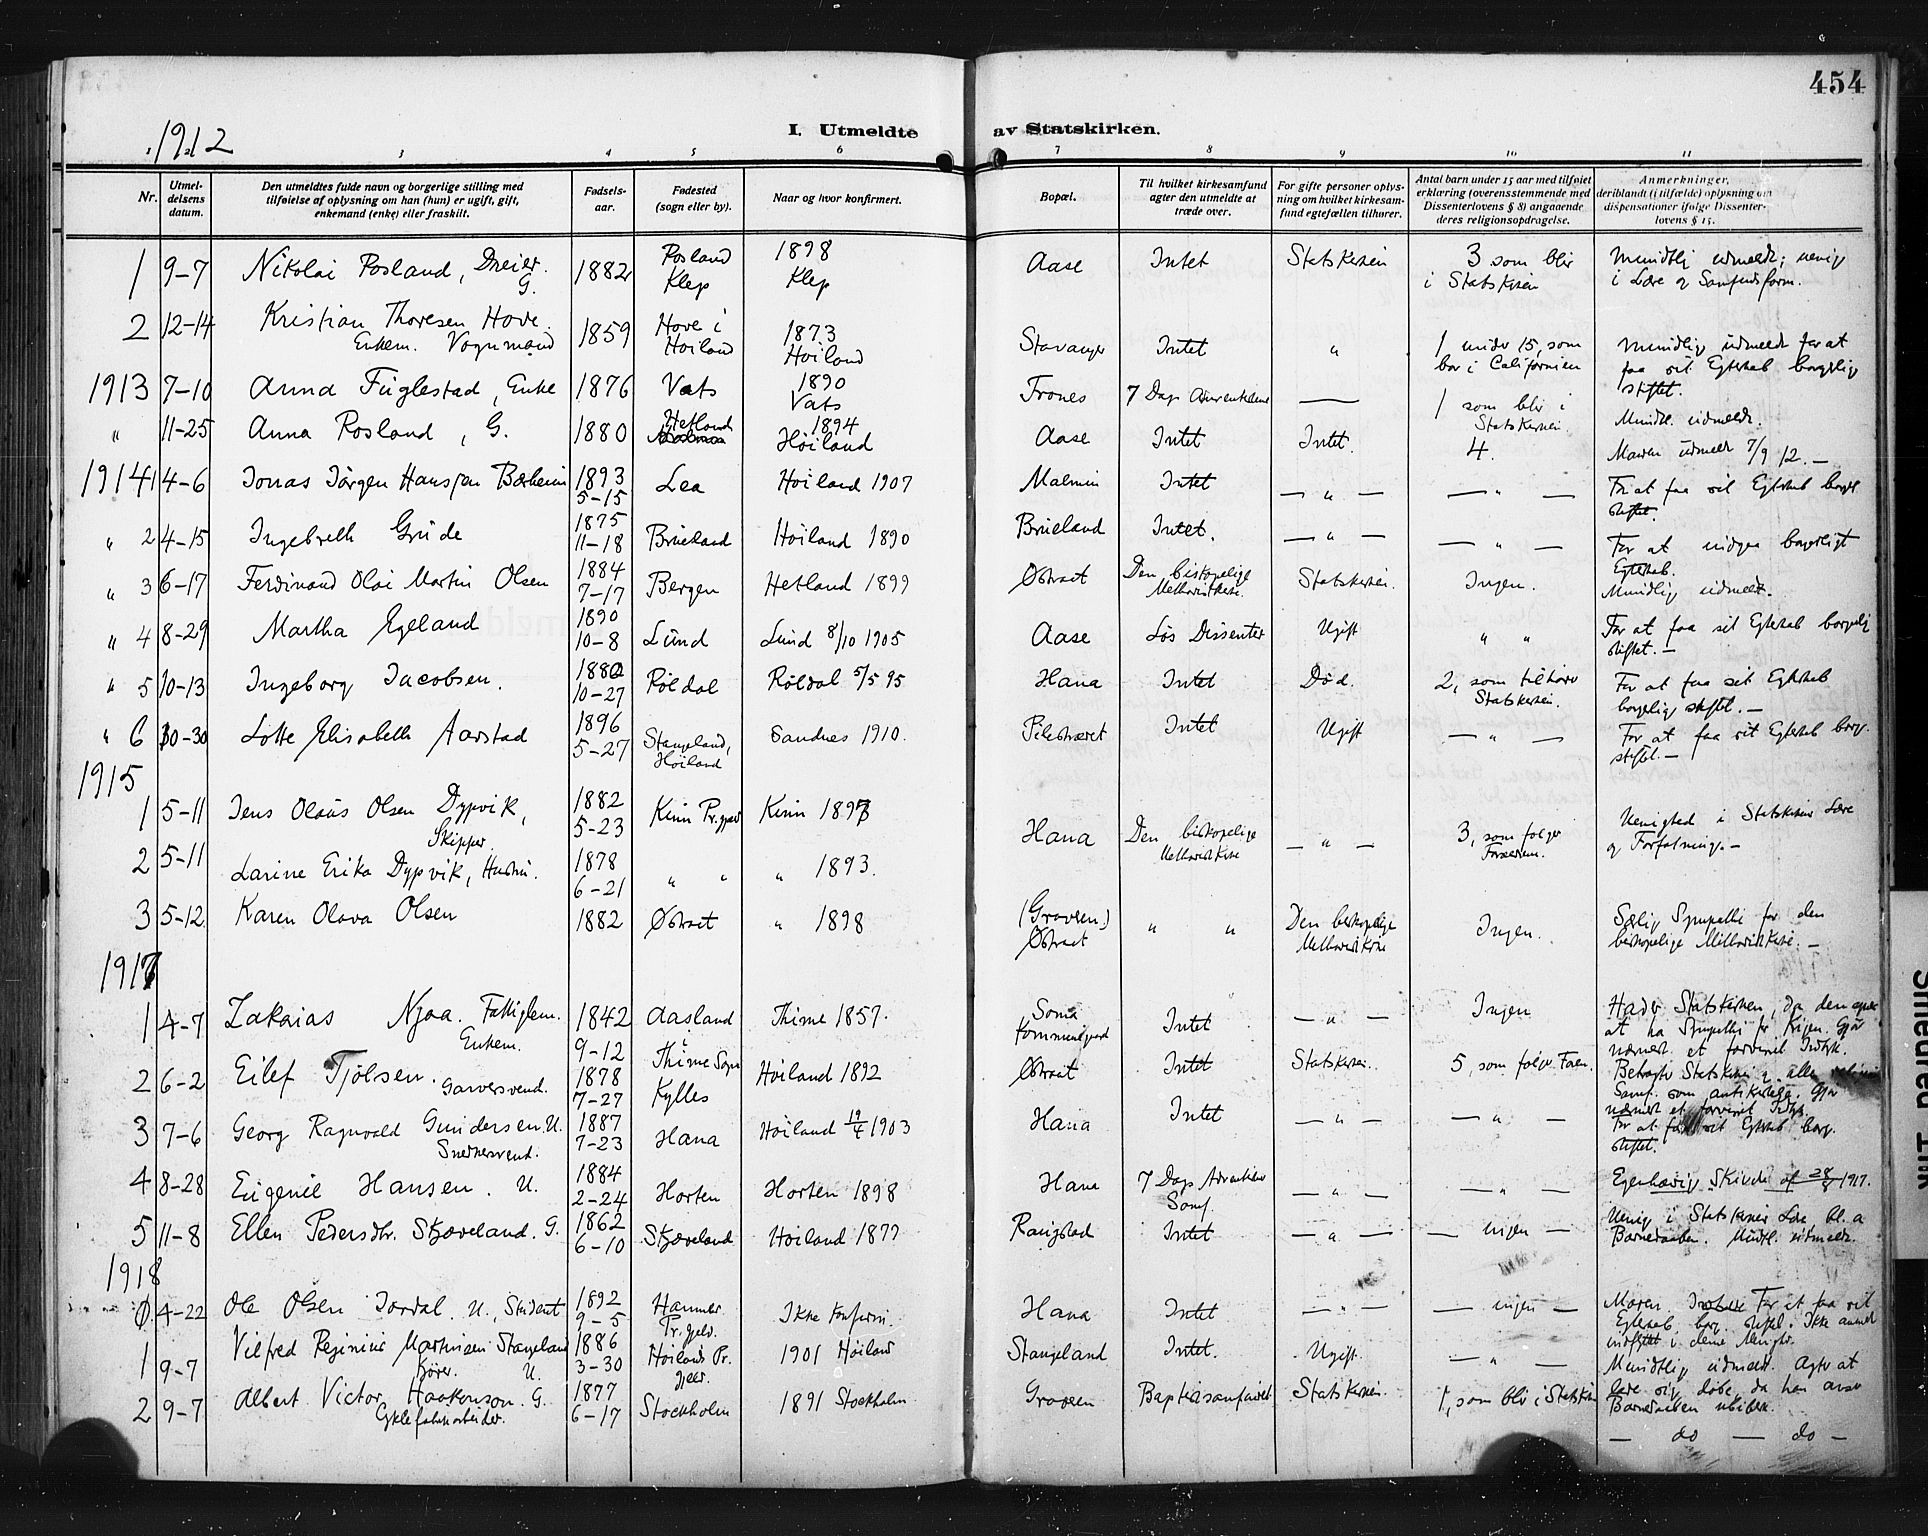 454
1912
I. Utmeldte av Statskirken.
1 2 3 4 5 6 7 8 9 10 11
Nr.
Utmel-
delsens
datum.
Den utmeldtes fulde navn og borgerlige stilling med
tilføielse af oplysning om han (hun) er ugift, gift,
enkemand (enke) eller fraskilt.
Fødsels-
aar.
Fødested
(sogn eller by).
Naar og hvor konfirmert.
Bopæl.
Til hvilket kirkesamfund
agter den utmeldte at
træde over.
For gifte personer oplys-
ning om hvilket kirkesam-
fund egtefællen tilhører.
Antal barn under 15 aar med tilføiet
erklæring (overensstemmende med
Dissenterlovens § 8) angaaende
deres religionsopdragelse.
Anmerkninger,
deriblandt (i tilfælde) oplysning om
dispensationer ifølge Dissenter-
lovens § 15.
1 9-7 Nikolai Rosland, Dreier. G. 1882 Rosland Klep 1898 Klep Aase Intet Statskirken 3 som blir i Statskirken Mundtlig udmeldt; uenig i Lære og Samfundsform.
2 12-14 Kristian Thoresen Hove. Enkem. Vognmand 1859 Hove i Hoiland 1873 Hoiland Stavanger Intet " 1 under 15, som bor i Californien Mundtlig udmeldt for at faa sit Egteskab borgerlig stiftet.
1913 7-10 Anna Fuglestad, Enke 1876 Vats 1890 Vats Frones 7 Dags Adventistene — 1 som blir i Statskirken. Mundtl. udmeldt.
" 11-25 Anna Rosland, G. 1880 Hetland 1894 Høiland Aase Intet Intet. 4. Manden udmeldt 7/9 12. —
1914 1 4-6 Jonas Jörgen Hansen Bærheim 1893 5-15 Lea Hoiland 1907 Malmin Intet — " — — " — For at faa sit Egteskab borgl stiftet.
" 2 4-15 Ingebreth Grude 1875 11-18 Brueland Hoiland 1890 Brueland Intet. — " — — " — For at indgaa borgerligt Egteskab.
" 3 6-17 Ferdinand Olai Martin Olsen 1884 7-17 Bergen Hetland 1899 Østraat Den biskopelige Methodistkirke. Statskirken. Ingen. Mundlig udmeldt.
" 4 8-29 Martha Egeland 1890 10-8 Lund Lund 8/10 1905 Aase Løs Dissenter Ugift " " For at faa sit Egteskab borgerlig stiftet. —
" 5 10-13 Ingeborg Jacobsen. 1880 10-27 Røldal Røldal 5/5 95 Hana Intet Død. 2, som tilhører Statskirken. For at faa sit Egteskab borgerlig stiftet. —
" 6 10-30 Lotte Elisabeth Aarstad 1896 5-27 Stangeland, Høiland Sandnes 1910. Pilestrædet Intet Ugift — " — For at faa sit Egteskab borg. stiftet. —
1915
1 5-11 Jens Olaus Olsen Dypvik, Skipper. 1882 5-23 Kinn Pr.gjæld Kinn 1897 Hana Den biskopelige Methodistkirke — " — 3, som følger Forældrene. Uenighed i Statskirkens Lære og Forfatning. —
2 5-11 Larine Erika Dypvik, Hustru. 1878 6-21 " " " 1893.
3 5-12 Karen Olava Olsen 1882 Østraat " 1898 (Gravsen.) Østraat " " Den biskopelige Methodistkirke Ingen. Særlig Sympathi for den biskopelige Methodistkirke. —
1917
1 4-7 Zakarias Njaa. Fattiglem. Enkem. 1842 9-12 Aasland i Thime Sogn Thime 1857. Soma kommunegaard Intet — " — Ingen Hader Statskirken, da den at ha Sympathi for Krigen. Gjør nærmest et forvirret Indtryk.
2 6-2 Eilef Tjølsen. Garversvend. 1878 7-27 Kylles Hoiland 1892 Østraat Intet Statskirken. 5, som følger Faren. Betragter Statskirken og alle Samf. som antikristelige. Gjør nærmest et forvirret Indtryk.
3 7-6 Georg Ragnvald Gundersen. U. Snedkersvend. 1887 7-23 Hana Hoiland 19/4 1903 Hana Intet — " — — " — For at faa sit Egteskab borg. stiftet.
4 8-28 Eugenie Hansen. U. 1884 2-24 Horten Horten 1898 Hana 7 Dags Adventisternes Samf. — " — — " — Egenhændig Skrivelse af 28/8 1917.
5 11-8 Ellen Pedersdtr. Skjæveland. G. 1862 6-10 Skjæveland Hoiland 1877 Raugstad Intet — " — — ingen — Uenig i Statskirkens Lære, bl. a Barnedaaben. Mundtl. udmeldt.
1918
0. 4-22 Ole Olsen Jordal. U., Student 1892 9-5 Hammer Pr.gjeld. Ikke konfirm. Hana Intet — " — — ingen — Moren. For at faa sit Egteskab borg. stiftet. Ikke anmeldt indflyttet i denne Menighed.
1 9-7 Vilfred Reginius Martinsen Stangeland Kjører. U. 1886 3-30 Høilands Pr. gjæld. 1901 Høiland Stangeland Intet. Ugift. — " — Mundtlig udmeldt. Agter at lade sig døbe, da han anser Barnedaaben ubibelsk.
2 9-7 Albert Victor Haakonson. G. Cyklefabrikarbeider. 1877 6-17 Stockholm 1891 Stockholm Gravsen Baptistsamfundet Statskirken. 1, som blir i Statskirken — do — do —